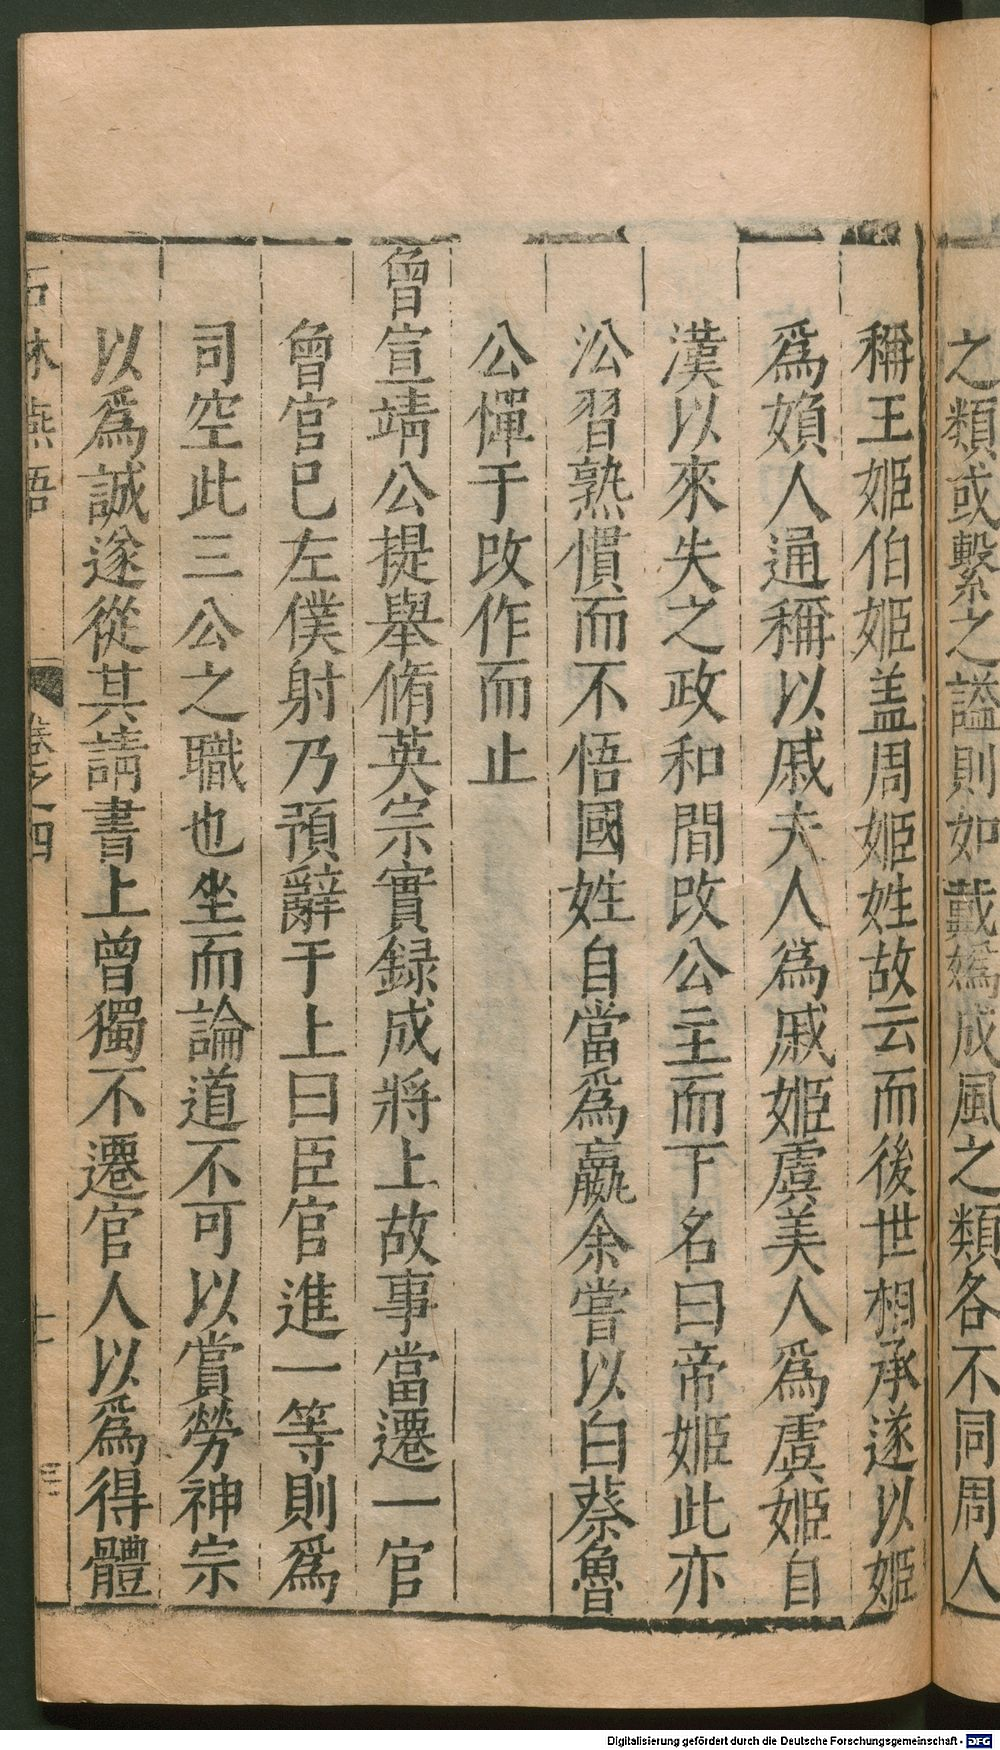 之類或繫之謚則如戴嬀成風之類各不同周人
稱王姬伯姬盖周姬姓故云而後世相承遂以姬
爲婦人通稱以戚夫人爲戚姬虞美人爲虞姬自
漢以來失之政和間改公主而下名曰帝姬此亦
㳂習熟慣而不悟國姓自當爲嬴余嘗以白蔡魯
公憚于改作而止
曾宣靖公提舉脩英宗實録成將上故事當遷一官
曾官已左僕射乃預辭于上曰臣官進一等則爲
司空此三公之職也坐而論道不可以賞勞神宗
以爲誠遂從其請書上曾獨不遷官人以爲得體
石林燕語
卷之四
十三
Digitalisierung gefördert durch die Deutsche Forschungsgemeinschaft - DFG